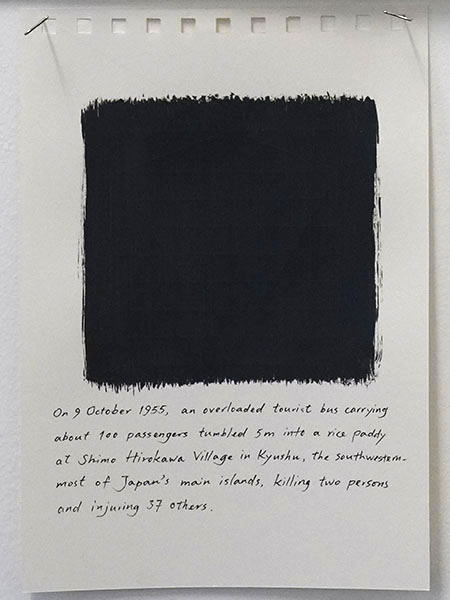 On 9 October 1955, an overloaded tourist bus carrying
about 100 passengers tumbled 5m into a rice paddy
at Shimo Hirokawa Village in Kyushu, the southwestern-
most of Japan's main islands, killing two persons
and injuring 37 others.